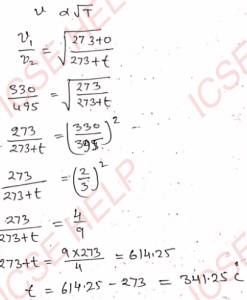 v α √T
v₁/v₂ = √(273+0/273+t)
330/495 = √(273/273+t)
273/273+t = (330/395)²
273/273+t = (2/3)²
273/273+t = 4/9
273+t = 9×273/4 = 614.25
t = 614.25 - 273 = 341.25 °C
ICSE HELP
ICSE HELP
ICSE HELP